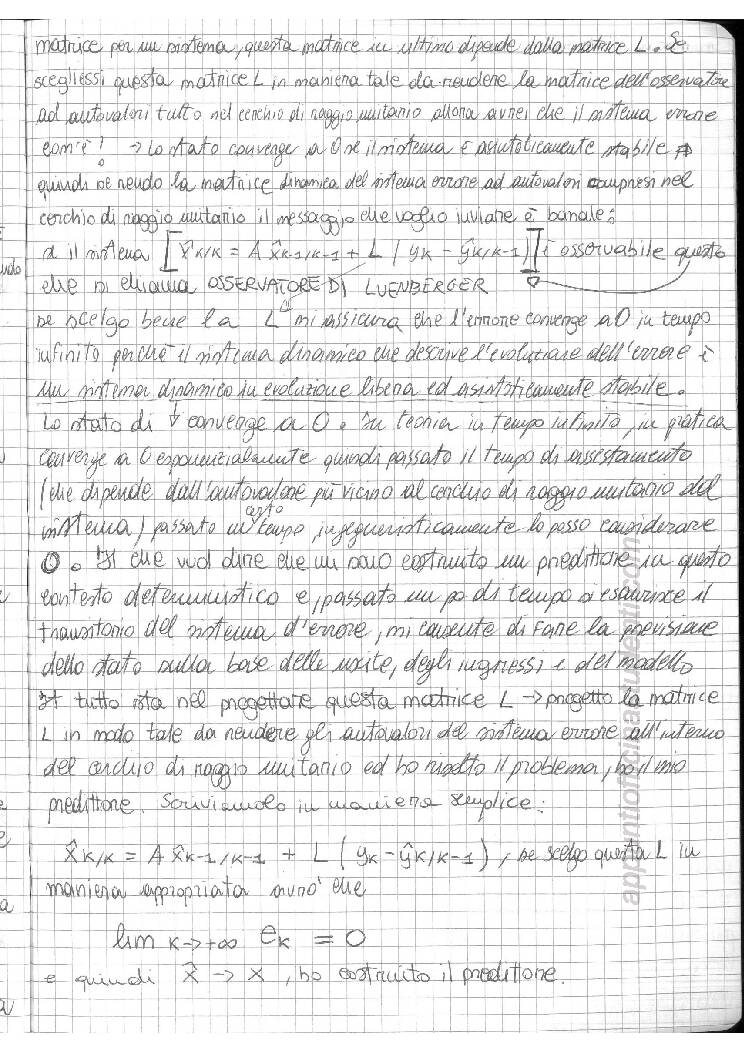 matrice per un sistema, questa matrice in ultimo dipende dalla matrice L. Se
scegliessi questa matrice L in maniera tale da rendere la matrice dell'osservatore
ad autovalori tutto nel cerchio di raggio unitario allora avrei che il sistema errore
com'è? → Lo stato converge a 0 se il sistema è asintoticamente stabile
quindi se rendo la matrice dinamica del sistema errore ad autovalori compresi nel
cerchio di raggio unitario il messaggio che voglio inviare è banale:
il sistema [x̂k/k = A x̂k-1/k-1 + L (yk - ŷk/k-1)] è osservabile questo
che si chiama OSSERVATORE DI LUENBERGER
se scelgo bene la L mi assicura che l'errore converge a 0 in tempo
infinito perché il sistema dinamico che descrive l'evoluzione dell'errore è
un sistema dinamico in evoluzione libera ed asintoticamente stabile.
Lo stato di converge a 0. In teoria in tempo infinito, in pratica
converge a 0 esponenzialmente quindi passato il tempo di assestamento
(che dipende dall'autovalore più vicino al cerchio di raggio unitario del
sistema) passato un certo tempo, ingegneristicamente lo posso considerare
0. Il che vuol dire che mi sono costruito un predittore in questo
contesto deterministico e, passato un po di tempo si esaurisce il
transitorio del sistema d'errore, mi consente di fare la previsione
dello stato sulla base delle uscite, degli ingressi e del modello
Il tutto sta nel progettare questa matrice L → progetto la matrice
L in modo tale da rendere gli autovalori del sistema errore all'interno
del cerchio di raggio unitario ed ho risolto il problema, ho il mio
predittore. Scriviamolo in maniera semplice:
x̂k/k = A x̂k-1/k-1 + L (yk - ŷk/k-1), se scelgo questa L in
maniera appropriata avrò che
lim k→+∞ ek = 0
e quindi x̂ → x, ho costruito il predittore.